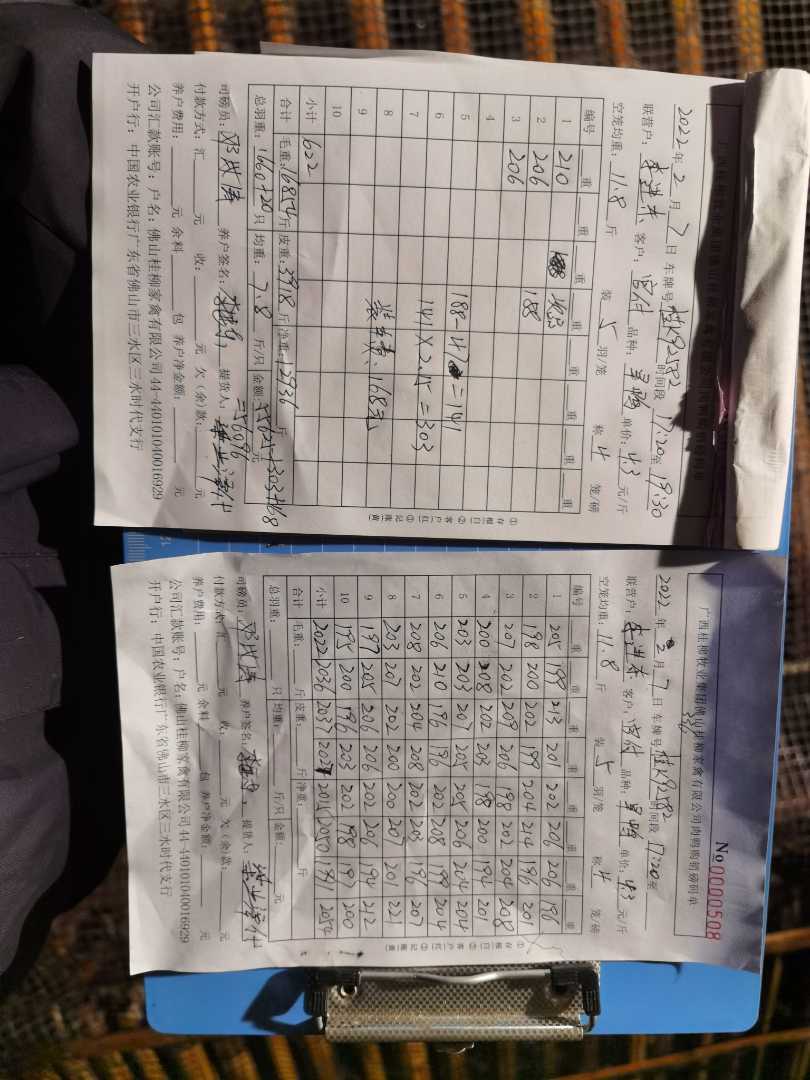 2022年2月7日 车牌号桂K92582 时间段17:20至19:30
联营户：李进杰 客户：官付 品种：旱鸭 单价：4.3元/斤
空笼均重：11.8斤 装5羽/笼 称4笼/磅
编号 重 重 重 重 重 重 重 重
1 210 次品
2 206 188
3 206
4
5 188-47=141
6 141×2.15=303
7
8 装车费：168元
9
10
小计 622
合计 毛重：16854斤 皮重：3918斤 净重：12936斤
总羽重：1660+20只 均重：7.8斤/只 金额：元
司磅员： 养户签名： 提货人：
=56096
付款方式：汇元 收：元 欠（余）款：元
养户费用：元 余料包 养户净金额：元
公司汇款账号：户名：佛山桂柳家禽有限公司 44-440101040016929
开户行：中国农业银行广东省佛山市三水区三水时代支行
①存根(白) ②客户(红) ③记账(黄)
广西桂柳牧业集团佛山桂柳家禽有限公司肉鸭购销磅码单
No 0000508
336
2022年2月7日 车牌号桂K92582 时间段17:20至
联营户：李进杰 客户：官付 品种：旱鸭 单价：4.3元/斤
空笼均重：11.8斤 装5羽/笼 称4笼/磅
编号 重 重 重 重 重 重 重 重
1 205 199 213 201 202 206 206 196
2 198 200 202 199 204 214 196 201
3 207 202 209 206 198 202 204 208
4 200 208 202 203 198 200 194 201
5 203 203 207 205 205 206 204 204
6 206 210 196 196 202 208 199 204
7 208 202 204 208 202 203 196 207
8 203 207 202 200 200 207 201 221
9 197 205 206 206 202 206 194 212
10 195 200 196 203 202 198 197 200
小计 2022 2036 2037 2027 2015 2050 1991 2054
合计 毛重：斤 皮重：斤 净重：斤
总羽重：只 均重：斤/只 金额：元
司磅员： 养户签名： 提货人：
付款方式：汇元 收：元 欠（余）款：元
养户费用：元 余料包 养户净金额：元
公司汇款账号：户名：佛山桂柳家禽有限公司 44-440101040016929
开户行：中国农业银行广东省佛山市三水区三水时代支行
①存根(白) ②客户(红) ③记账(黄)